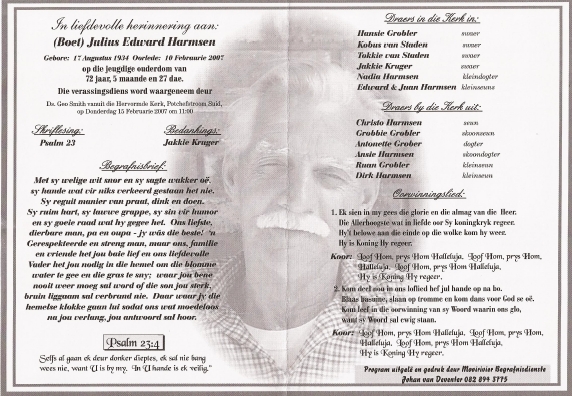 In liefdevolle herinnering aan:
(Boet) Julius Edward Harmsen
Gebore: 17 Augustus 1934 Oorlede: 10 Februarie 2007
op die jeugdige ouderdom van
72 jaar, 5 maande en 27 dae.
Die verassingsdiens word waargeneem deur
Ds. Geo Smith vanuit die Hervormde Kerk, Potchefstroom Suid,
op Donderdag 15 Februarie 2007 om 11:00
Skriflesing:
Psalm 23
Bedankings:
Jakkie Kruger
Begrafnisbrief:
Met sy welige wit snor en sy sagte wakker oë.
sy hande wat vir niks verkeerd gestaan het nie.
Sy reguit manier van praat, dink en doen.
Sy ruim hart, sy lauwe grappe, sy sin vir humor
en sy goeie raad wat hy gegee het. Ons liefste,
dierbare man, pa en oupa - jy wás die beste! 'n
Gerespekteerde en streng man, maar ons, familie
en vriende het jou baie lief en ons liefdevolle
Vader het jou nodig in die hemel om die blomme
water te gee en die gras te sny; waar jou bene
nooit weer moeg sal word of die son jou sterk,
bruin liggaam sal verbrand nie. Daar waar jy die
hemelse klokke gaan lui sodat ons wat moedeloos
na jou verlang, jou antwoord sal hoor.
Psalm 23:4
"Selfs al gaan ek deur donker dieptes, ek sal nie bang
wees nie, want U is by my. In U hande is ek veilig."
Draers in die Kerk in:
Hansie Grobler seuner
Kobus van Staden seuner
Tokkie van Staden seuner
Jakkie Kruger seuner
Nadia Harmsen kleindogter
Edward & Juan Harmsen kleinseuns
Draers by die Kerk uit:
Christo Harmsen seun
Grobbie Grobler skoonseun
Antonette Grober dogter
Ansie Harmsen skoondogter
Ruan Grobler kleinseun
Dirk Harmsen kleinseun
Oorwinningslied:
1. Ek sien in my gees die glorie en die almag van die Heer.
Die Allerhoogste wat in liefde oor Sy koningkryk regeer.
Hy'l belowe aan die einde op die wolke kom hy weer.
Hy is Koning Hy regeer.
Koor: Loof Hom, prys Hom Halleluja, Loof Hom, prys Hom,
Halleluja, Loof Hom, prys Hom Halleluja,
Hy is Koning Hy regeer.
2. Kom deel nou in ons loflied hef jul hande op na bo.
Blaas basuine, slaan op tromme en kom dans voor God se oë.
Kom leef in die oorwinning van sy Woord waarin ons glo,
want sy Woord sal ewig staan.
Koor: Loof Hom, prys Hom Halleluja, Loof Hom, prys Hom,
Halleluja, Loof Hom, prys Hom Halleluja,
Hy is Koning Hy regeer.
Program uitgelê en gedruk deur Mooirivier Begrafnisdienste
Johan van Deventer 082 894 3775